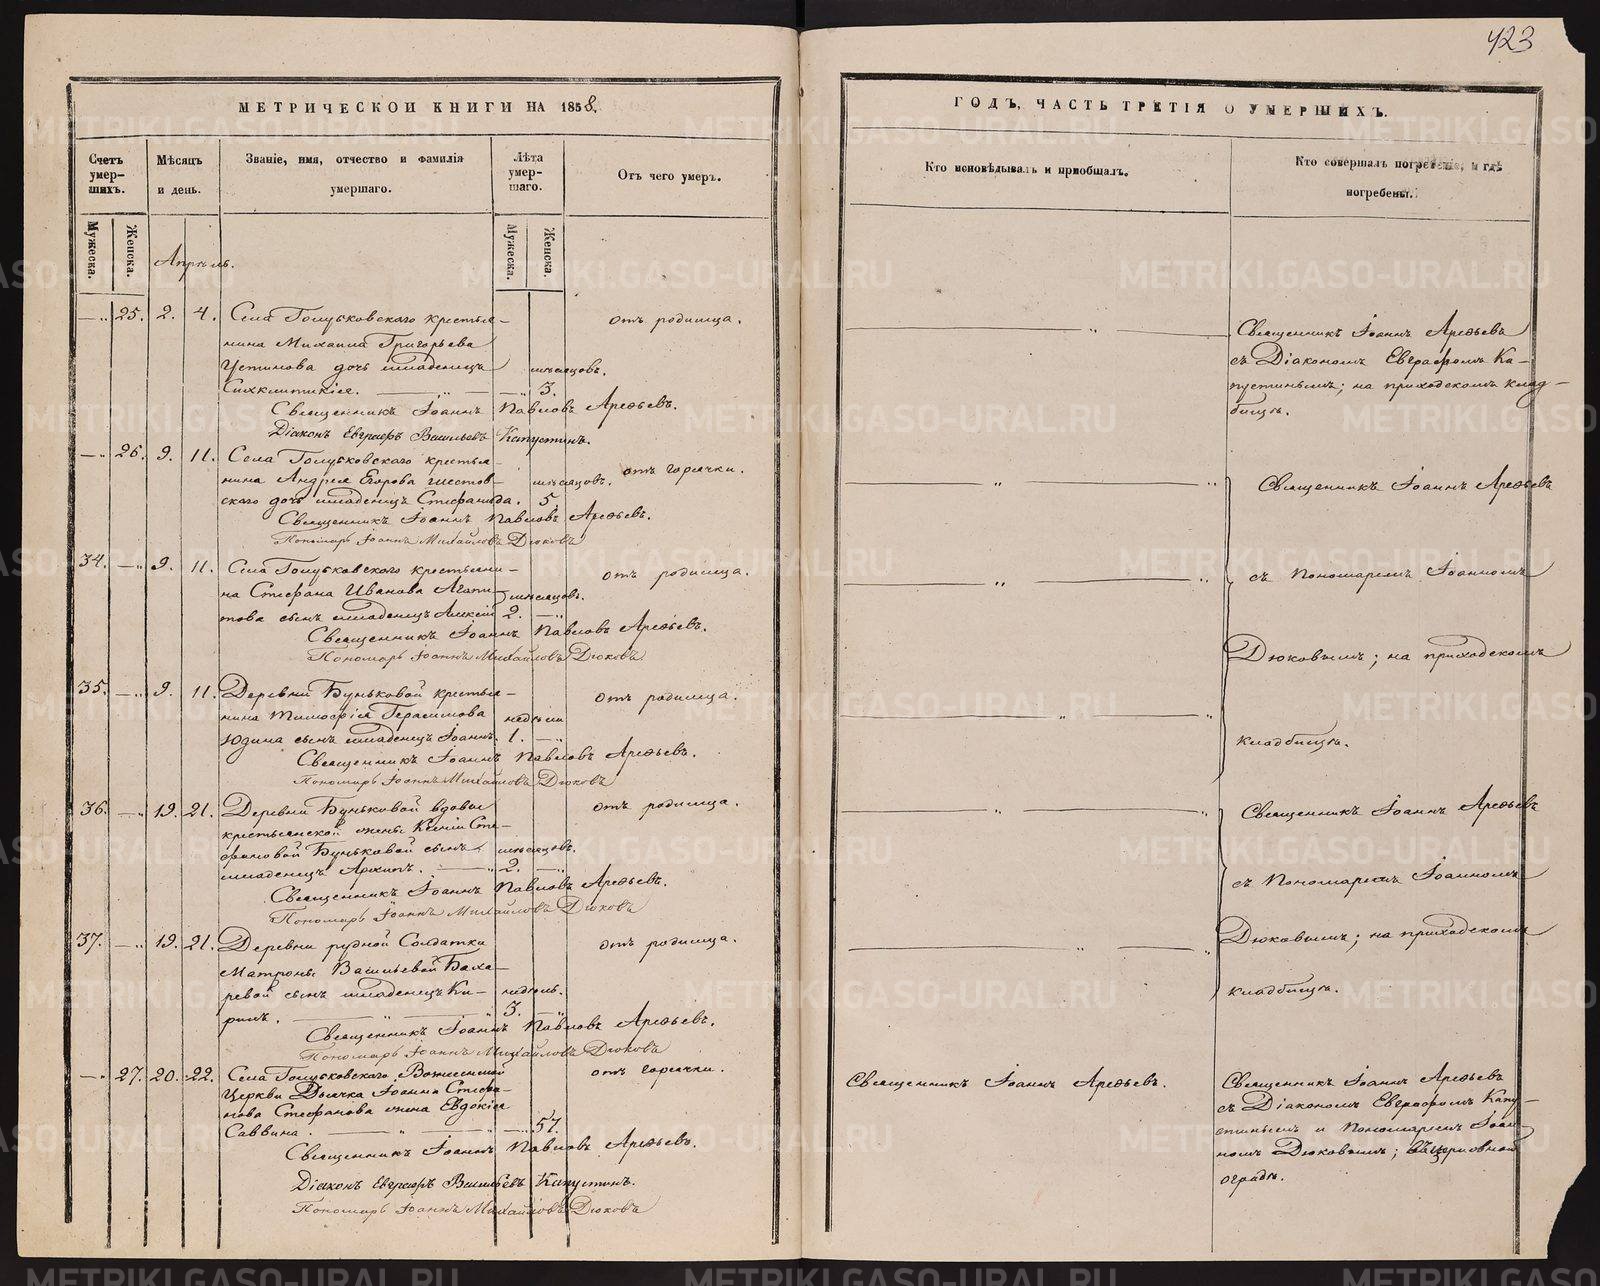 423
МЕТРИЧЕСКОЙ КНИГИ НА 1858.
Счетъ умер-шихъ.
Мужеска.
Женска.
Мѣсяцъ и день.
Званіе, имя, отчество и фамилія умершаго.
Лѣта умер-шаго.
Мужеска.
Женска.
Отъ чего умеръ.
Апрѣль.
—„ 25. 2. 4. Села Голубковскаго крестья- отъ родимца.
нина Михаила Григорьева
Устинова дочь младенецъ мѣсяцовъ.
Синклитикія. —„— —„ 3.
Священникъ Іоаннъ Павловъ Арефьевъ.
Діаконъ Евграфъ Васильевъ Капустинъ.
—„ 26. 9. 11. Села Голубковскаго крестья- отъ горячки.
нина Андрея Егорова Шестов- мѣсяцовъ.
скаго дочь младенецъ Стефанида. 5.
Священникъ Іоаннъ Павловъ Арефьевъ.
Пономарь Іоаннъ Михайловъ Дюковъ
34. —„ 9. 11. Села Голубковскаго крестьяни- отъ родимца.
на Стефана Иванова Агапи- мѣсяцовъ.
това сынъ младенецъ Алексій 2. —„
Священникъ Іоаннъ Павловъ Арефьевъ.
Пономарь Іоаннъ Михайловъ Дюковъ
35. —„ 9. 11. Деревни Буньковой крестья- отъ родимца.
нина Тимофѣя Герасимова недѣли
Юдина сынъ младенецъ Іоаннъ. 1. —„
Священникъ Іоаннъ Павловъ Арефьевъ.
Пономарь Іоаннъ Михайловъ Дюковъ
36. —„ 19. 21. Деревни Буньковой вдовы отъ родимца.
крестьянской жены Ксеніи Сте-
фановой Буньковой сынъ мѣсяцовъ.
младенецъ Архипъ. —„ 2. —„
Священникъ Іоаннъ Павловъ Арефьевъ.
Пономарь Іоаннъ Михайловъ Дюковъ
37. —„ 19. 21. Деревни рудной Солдатки отъ родимца.
Матроны Васильевой Баха-
ревой сынъ младенецъ Ки- недѣль.
рилъ. —„— 3. —„
Священникъ Іоаннъ Павловъ Арефьевъ.
Пономарь Іоаннъ Михайловъ Дюковъ
—„ 27. 20. 22. Села Голубковскаго Вознесенской отъ горячки.
Церкви Дьячка Іоанна Стефа-
нова Стефанова жена Евдокія
Саввина. —„— —„ 57.
Священникъ Іоаннъ Павловъ Арефьевъ.
Діаконъ Евграфъ Васильевъ Капустинъ.
Пономарь Іоаннъ Михайловъ Дюковъ
ГОДЪ, ЧАСТЬ ТРЕТІЯ О УМЕРШИХЪ.
Кто исповѣдывалъ и приобщалъ.
Кто совершалъ погребеніе, и гдѣ
погребены.
Священникъ Іоаннъ Арефьевъ
съ Діакономъ Евграфомъ Ка-
пустинымъ; на приходскомъ клад-
бищѣ.
Священникъ Іоаннъ Арефьевъ
съ Пономаремъ Іоанномъ
Дюковымъ; на приходскомъ
кладбищѣ.
Священникъ Іоаннъ Арефьевъ
съ Пономаремъ Іоанномъ
Дюковымъ; на приходскомъ
кладбищѣ.
Священникъ Іоаннъ Арефьевъ.
Священникъ Іоаннъ Арефьевъ
съ Діакономъ Евграфомъ Капу-
стинымъ и Пономаремъ Іоан-
номъ Дюковымъ; въ церковной
оградѣ.
METRIKI.GASO-URAL.RU